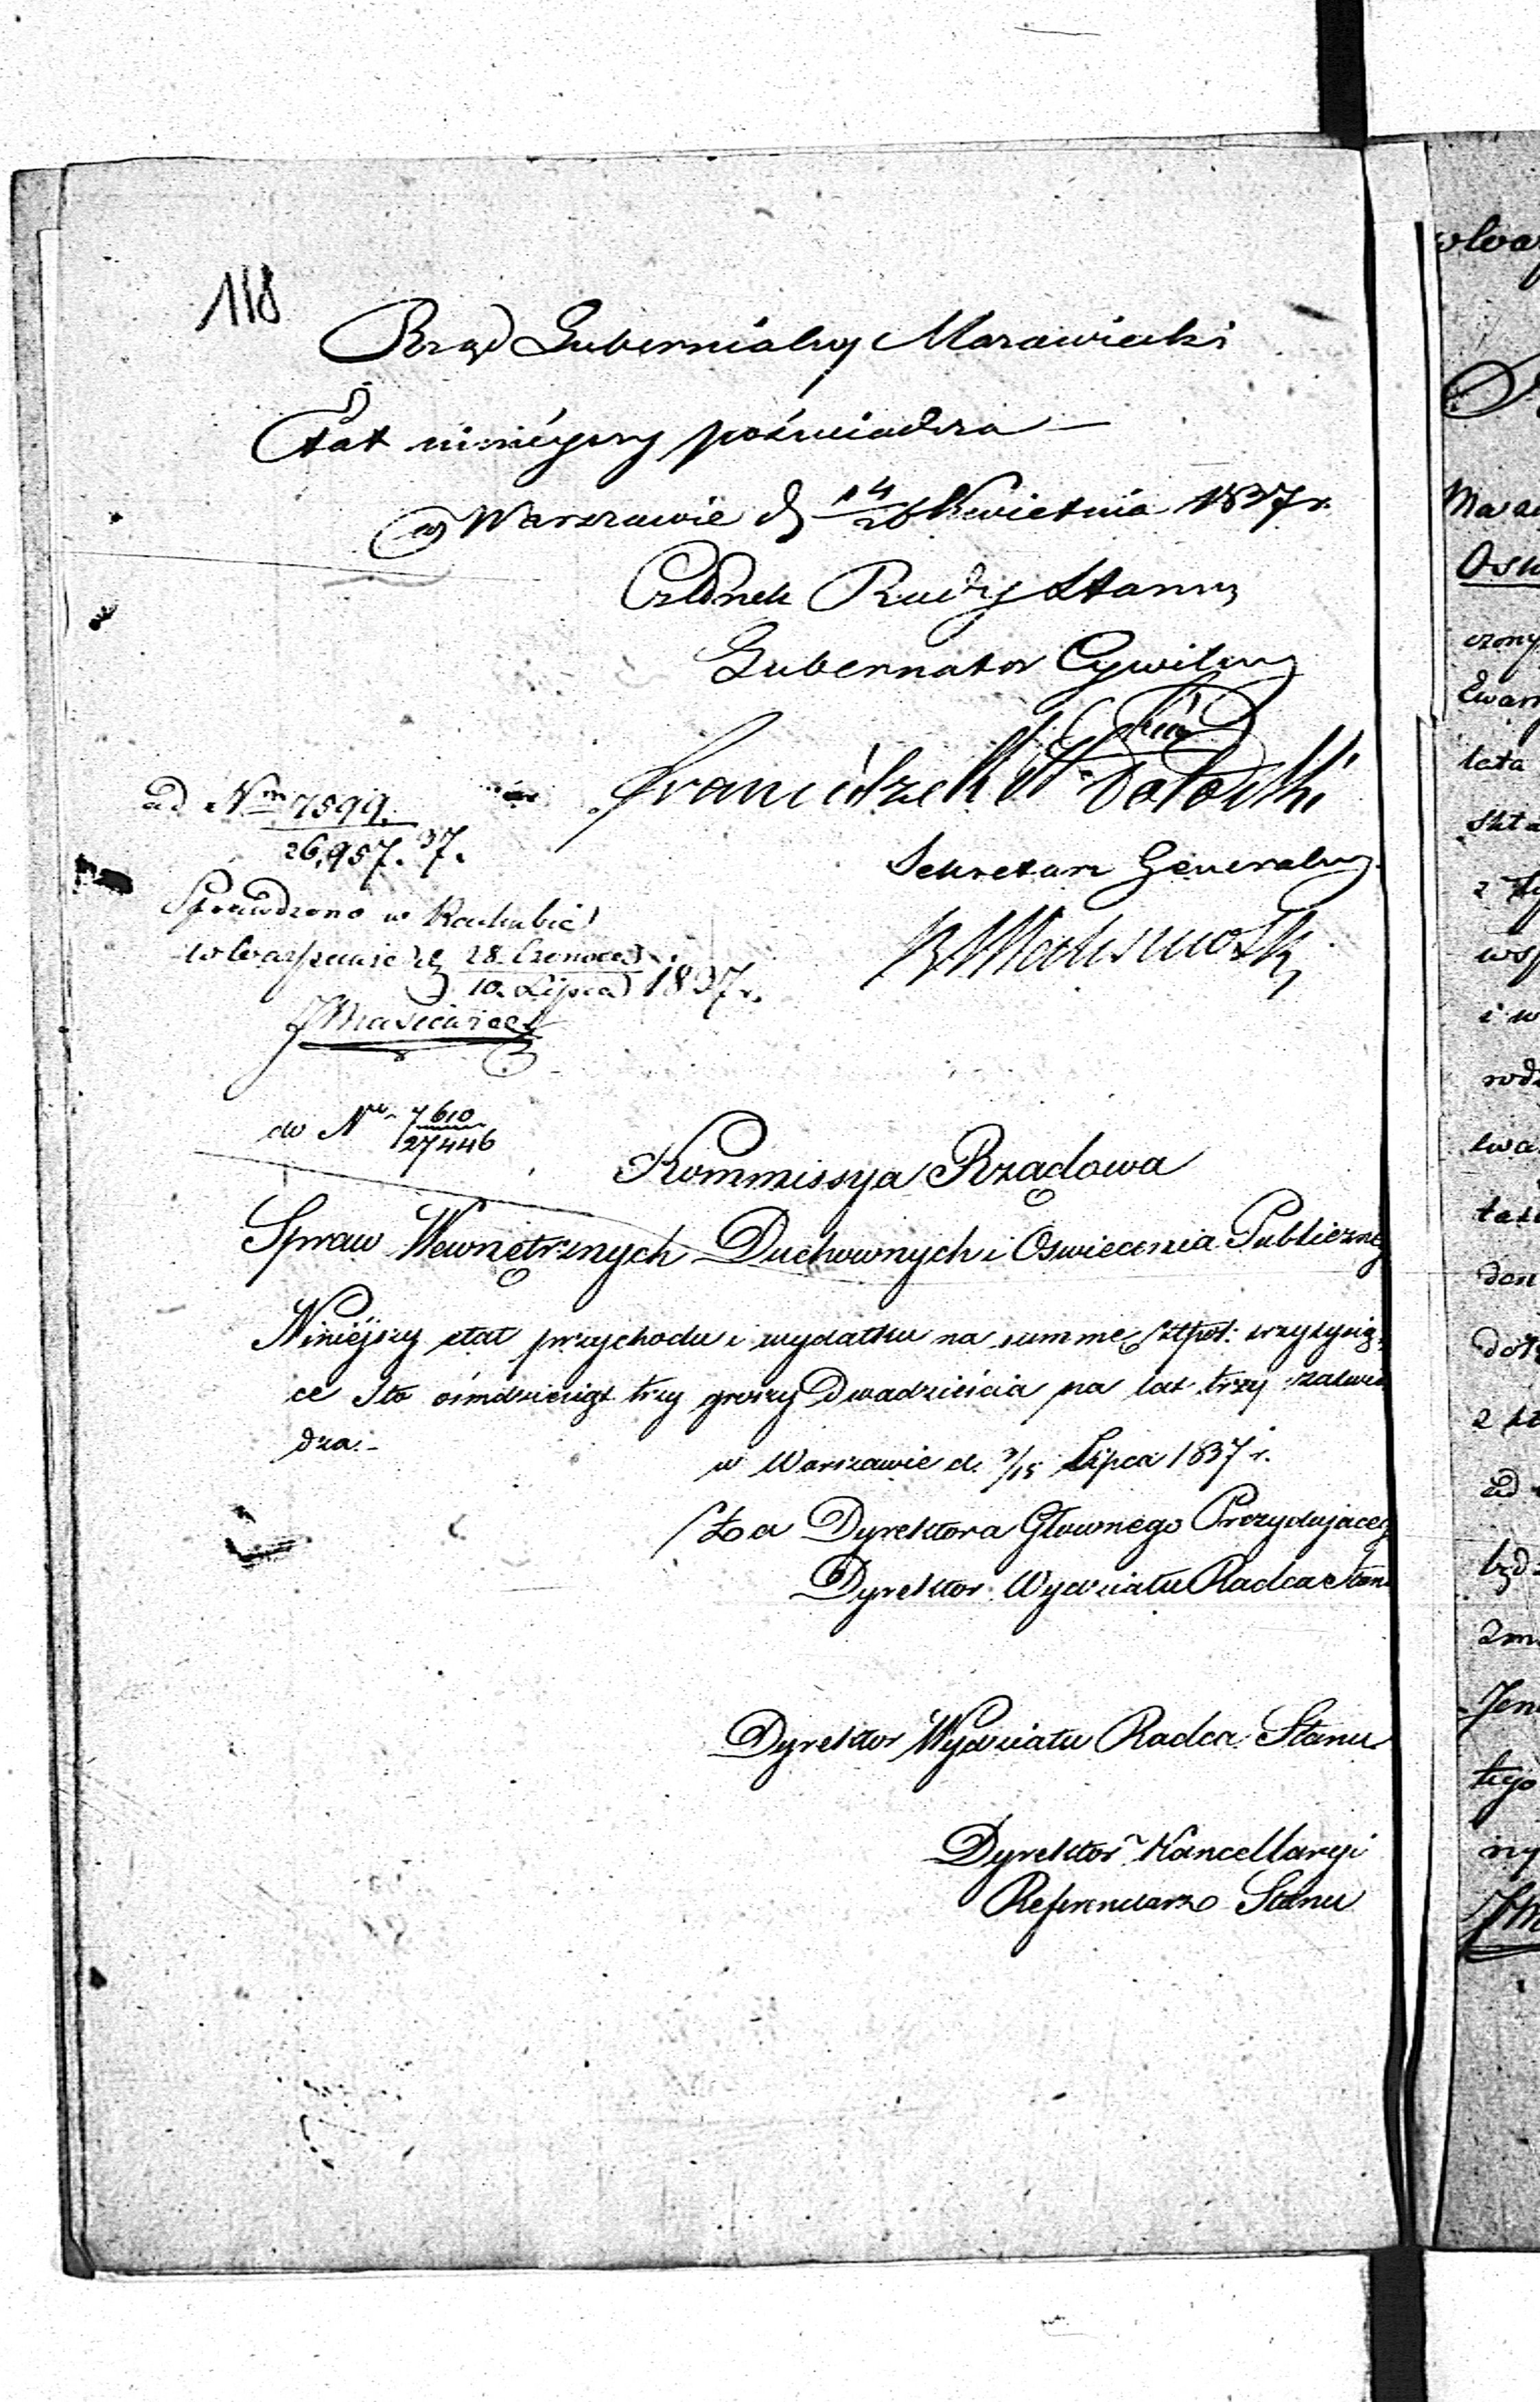 118
Rząd Gubernialny Mazowiecki
Etat niniéyszy poświadcza —
w Warszawie d 14/26 Kwietnia 1837 r.
Członek Rady Stanu
Gubernator Cywilny
Franciszek
Sekretarz Generalny
ad Nrm 7599.
26,957. 37.
Sprawdzono w Rachubie
w Warszawie d 28. Czerwca
10. Lipca 1837 r.
do Nru 7610
27446
Kommissya Rządowa
Spraw Wewnętrznych Duchownych i Oswiecenia Publiczne
Niniéjszy etat przychodu i wydatku na summę Złpol: trzy tysią
ce Sto ośmdziesiąt trzy groszy Dwadzieścia na lat trzy zatwier
dza.-
w Warszawie d. 3/15 Lipca 1837 r.
Za Dyrektora Głownego Prezydującego
Dyrektor Wydziału Radca Stanu
Dyrektor Wydziału Radca Stanu
Dyrektor Kancellaryi
Referendarz Stanu